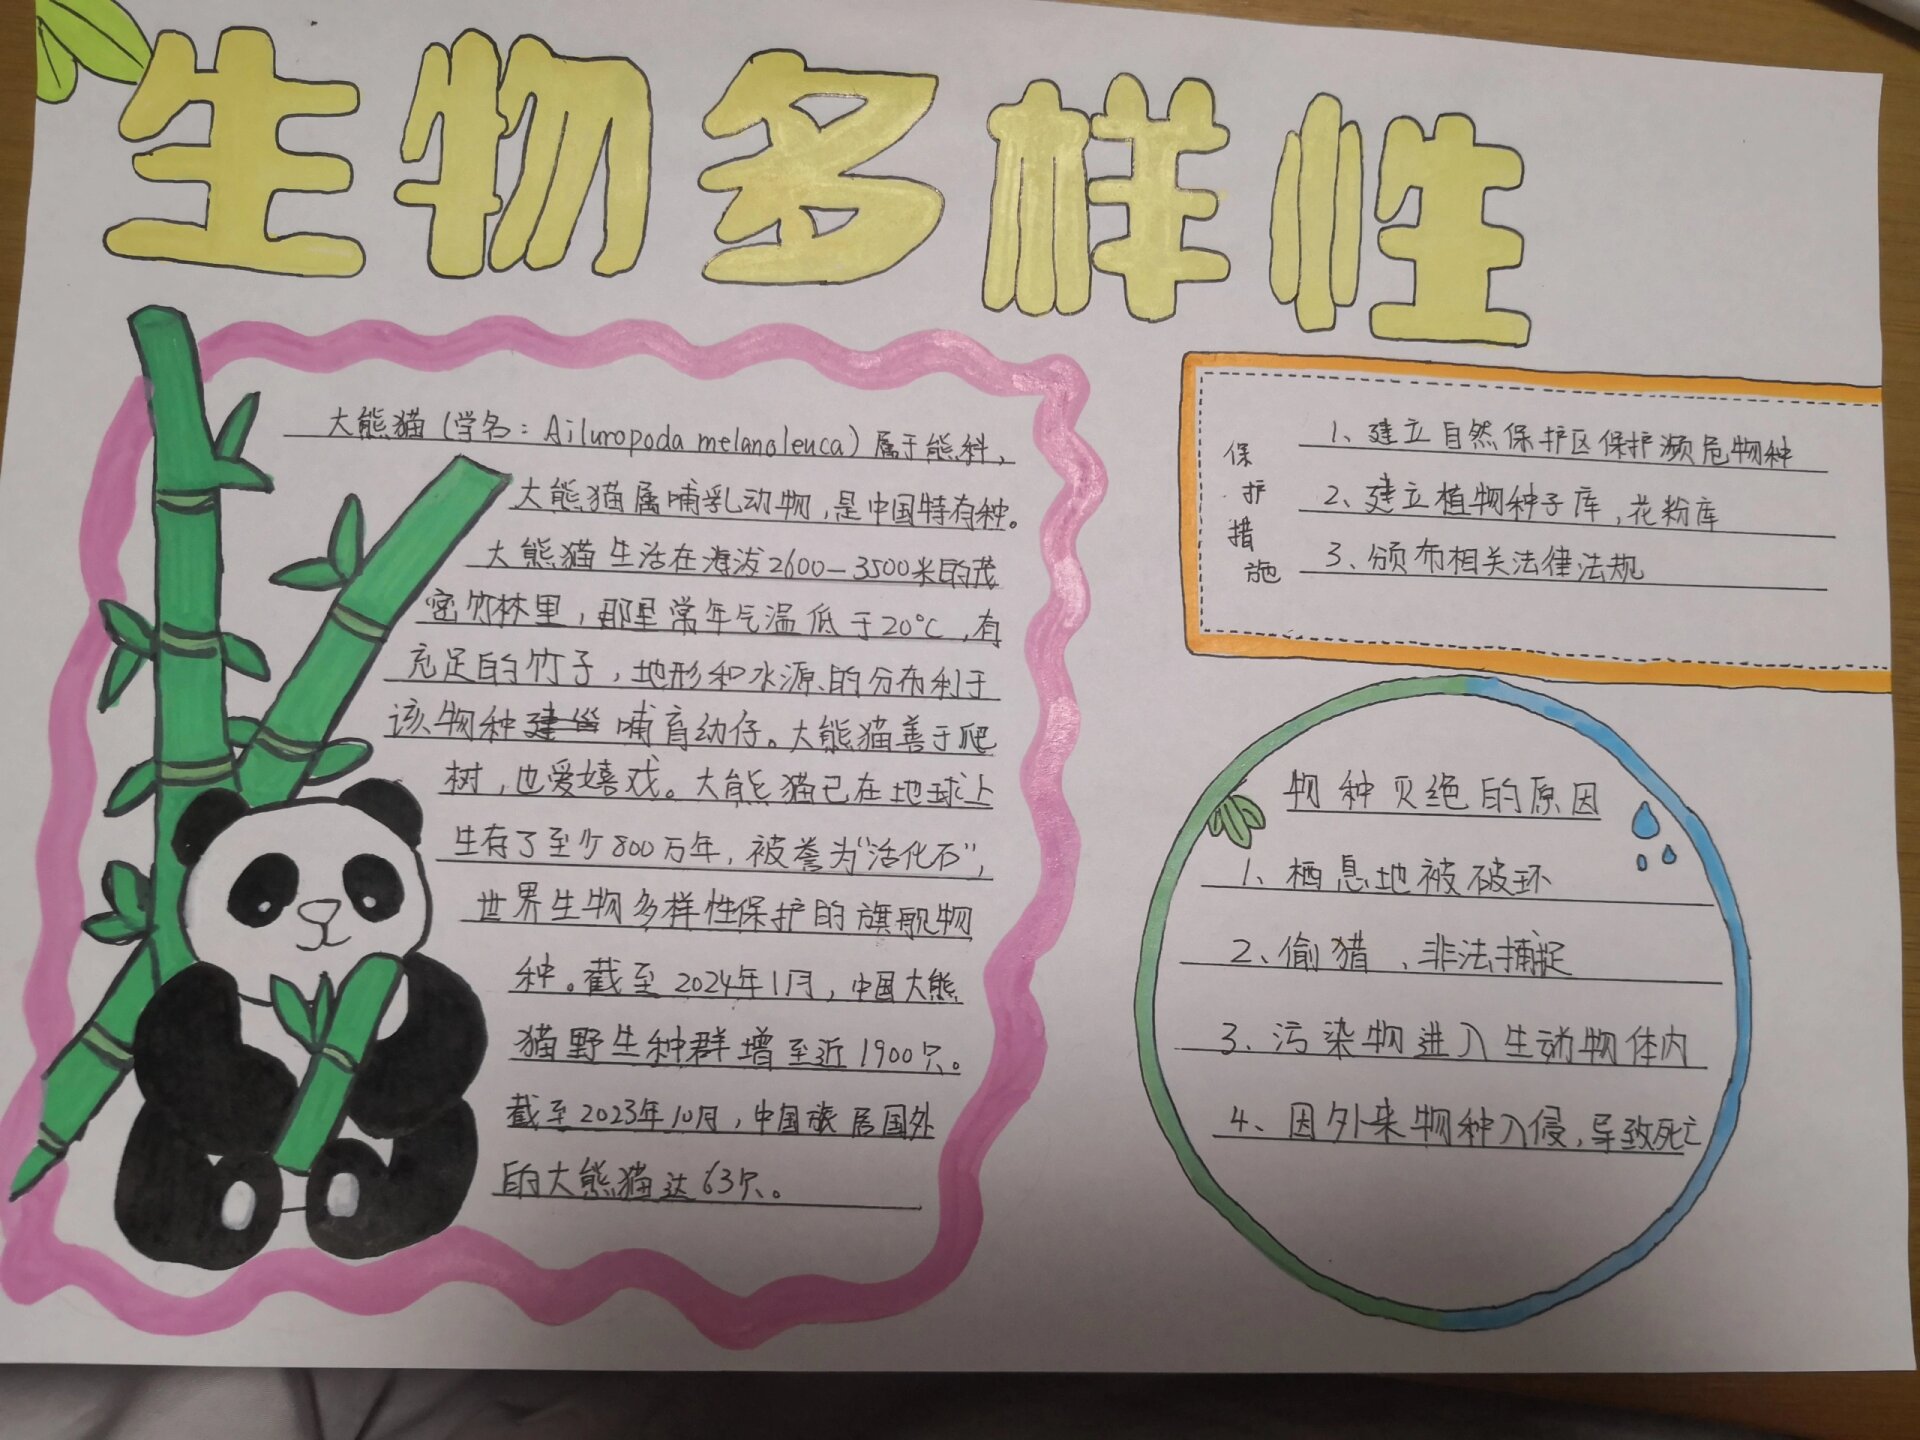 生物多样性
大熊猫(学名：Ailuropoda melanoleuca)属于熊科，
大熊猫属哺乳动物，是中国特有种。
大熊猫生活在海拔2600—3500米的茂
密竹林里，那里常年气温低于20℃，有
充足的竹子，地形和水源的分布利于
该物种哺育幼仔。大熊猫善于爬
树，也爱嬉戏。大熊猫已在地球上
生存了至少800万年，被誉为“活化石”，
世界生物多样性保护的旗舰物
种。截至2024年1月，中国大熊
猫野生种群增至近1900只。
截至2023年10月，中国旅居国外
的大熊猫达63只。
保护措施
1、建立自然保护区保护濒危物种
2、建立植物种子库，花粉库
3、颁布相关法律法规
物种灭绝的原因
1、栖息地被破环
2、偷猎、非法捕捉
3、污染物进入生动物体内
4、因外来物种入侵，导致死亡